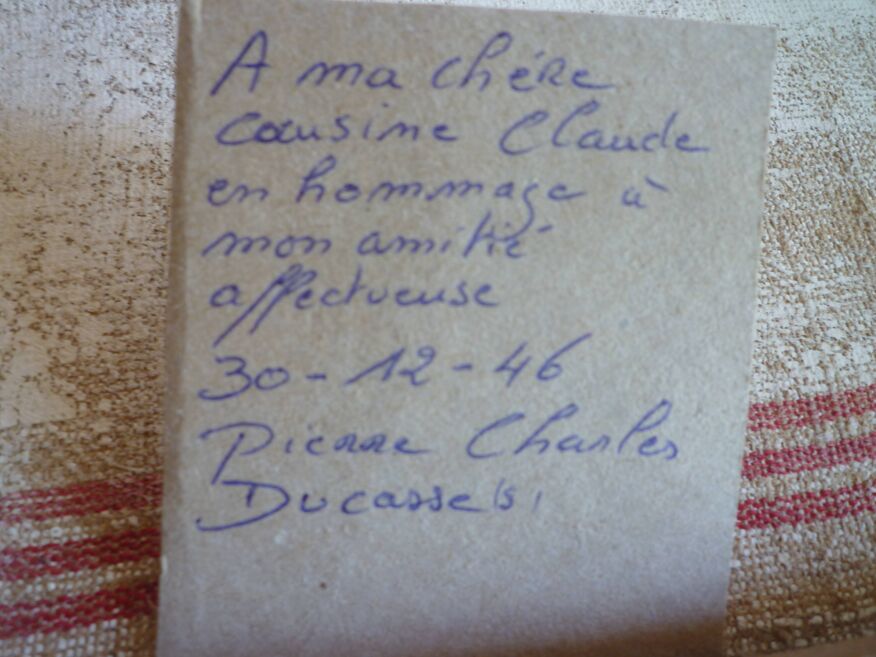 A ma chére
cousine Claude
en hommage à
mon amitié
affectueuse
30-12-46
Pierre Charles
Ducasse(s)